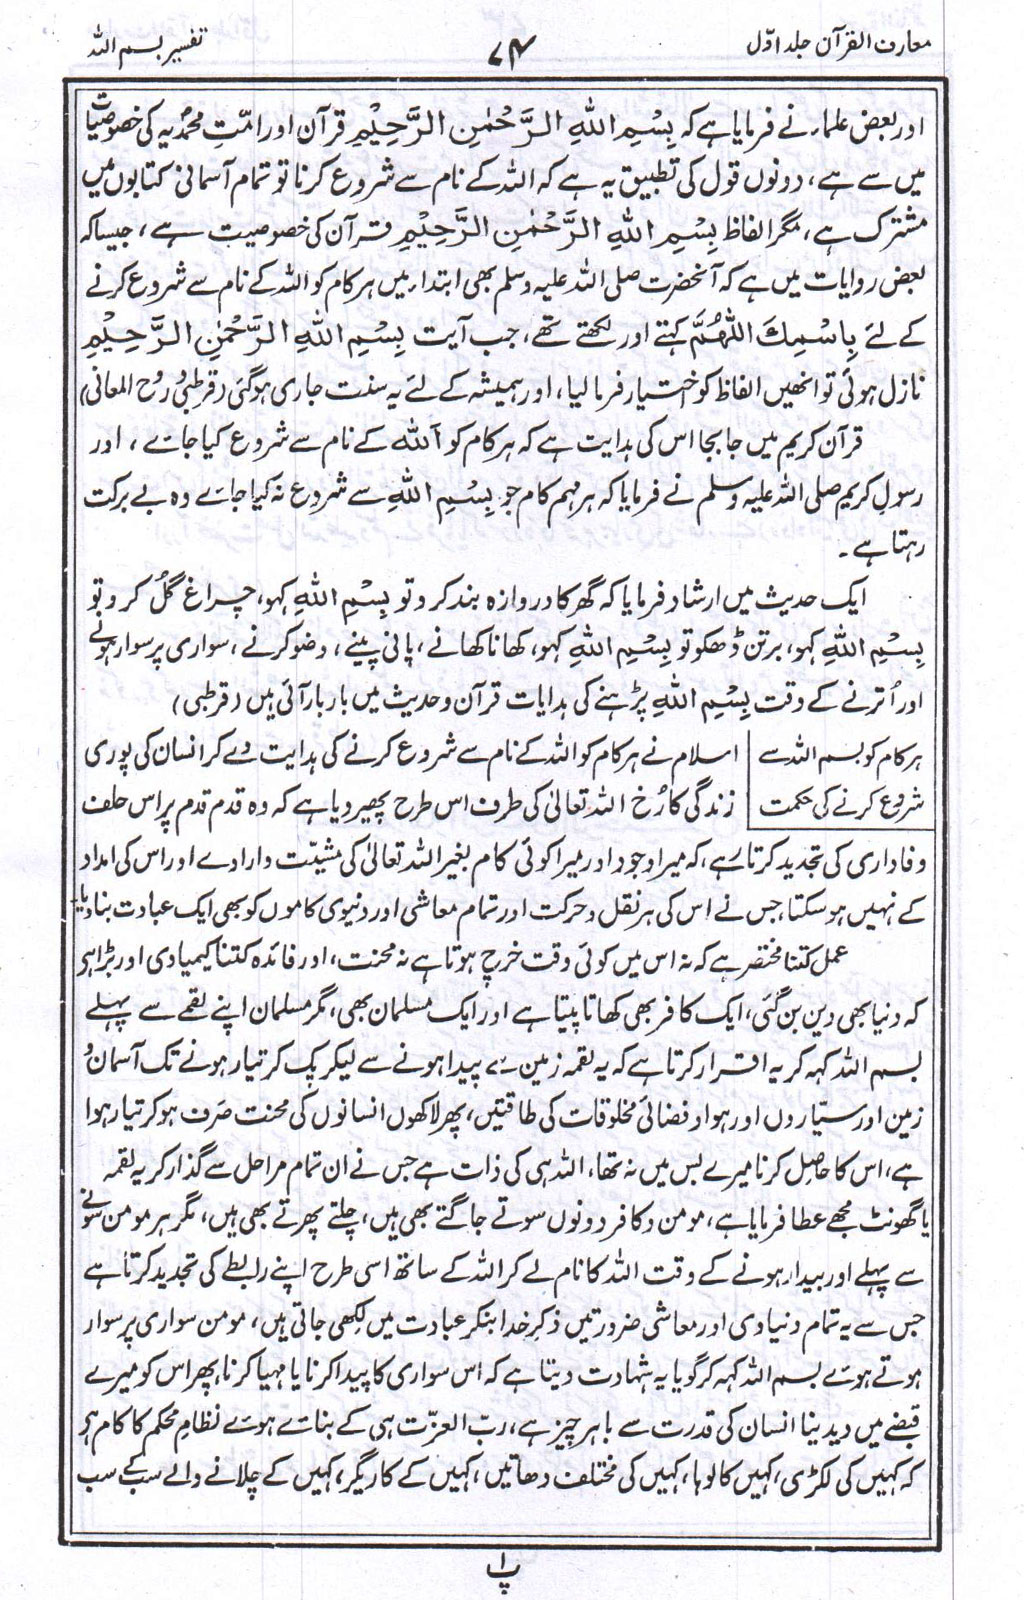 معارف القرآن جلد اوّل
۷۴
تفسیر بسم اللہ
اور بعض علماء نے فرمایا ہے کہ بِسْمِ اللّٰہِ الرَّحْمٰنِ الرَّحِیْمِ قرآن اور امّتِ محمّدیہ کی خصوصیات
میں سے ہے، دونوں قول کی تطبیق یہ ہے کہ اللہ کے نام سے شروع کرنا تو تمام آسمانی کتابوں میں
مشترک ہے، مگر الفاظ بِسْمِ اللّٰہِ الرَّحْمٰنِ الرَّحِیْمِ قرآن کی خصوصیت ہے، جیسا کہ
بعض روایات میں ہے کہ آنحضرت صلی اللہ علیہ وسلم بھی ابتداء میں ہر کام کو اللہ کے نام سے شروع کرنے
کے لئے بِاسْمِكَ اللّٰھُمَّ کہتے اور لکھتے تھے، جب آیت بِسْمِ اللّٰہِ الرَّحْمٰنِ الرَّحِیْمِ
نازل ہوئی تو انھیں الفاظ کو اختیار فرما لیا، اور ہمیشہ کے لئے یہ سنت جاری ہو گئی (قرطبیؒ روح المعانی)
قرآن کریم میں جا بجا اس کی ہدایت ہے کہ ہر کام کو اللہ کے نام سے شروع کیا جائے، اور
رسول کریم صلی اللہ علیہ وسلم نے فرمایا کہ ہر مہم کام جو بِسْمِ اللّٰہِ سے شروع نہ کیا جائے وہ بے برکت
رہتا ہے۔
ایک حدیث میں ارشاد فرمایا کہ گھر کا دروازہ بند کرو تو بِسْمِ اللّٰہِ کہو، چراغ گُل کرو تو
بِسْمِ اللّٰہِ کہو، برتن ڈھکو تو بِسْمِ اللّٰہِ کہو، کھانا کھانے، پانی پینے، وضو کرنے، سواری پر سوار ہونے
اور اُترنے کے وقت بِسْمِ اللّٰہِ پڑھنے کی ہدایات قرآن و حدیث میں بار بار آئی ہیں (قرطبی)
ہر کام کو بسم اللہ سے
شروع کرنے کی حکمت
اسلام نے ہر کام کو اللہ کے نام سے شروع کرنے کی ہدایت دے کر انسان کی پوری
زندگی کا رُخ اللہ تعالیٰ کی طرف اس طرح پھیر دیا ہے کہ وہ قدم قدم پر اس حلف
وفاداری کی تجدید کرتا رہے، کہ میرا وجود اور میرا کوئی کام بغیر اللہ تعالیٰ کی مشیّت و ارادے اور اس کی امداد
کے نہیں ہو سکتا، جس نے اس کی ہر نقل و حرکت اور تمام معاشی اور دنیوی کاموں کو بھی ایک عبادت بنا دیا،
عمل کتنا مختصر ہے کہ نہ اس میں کوئی وقت خرچ ہوتا ہے نہ محنت، اور فائدہ کتنا کیمیاوی اور بڑا ہے
کہ دنیا بھی دین بن گئی، ایک کافر بھی کھاتا پیتا ہے اور ایک مسلمان بھی، مگر مسلمان اپنے لقمے سے پہلے
بسم اللہ کہہ کر یہ اقرار کرتا ہے کہ یہ لقمہ زمین سے پیدا ہونے سے لیکر پک کر تیار ہونے تک آسمان و
زمین اور سیّاروں اور ہوا و فضائی مخلوقات کی طاقتیں، پھر لاکھوں انسانوں کی محنت صَرف ہو کر تیار ہوا
ہے، اس کا حاصل کرنا میرے بس میں نہ تھا، اللہ ہی کی ذات ہے جس نے ان تمام مراحل سے گذار کر یہ لقمہ
یا گھونٹ مجھے عطا فرمایا ہے، مومن و کافر دونوں سوتے جاگتے بھی ہیں، چلتے پھرتے بھی ہیں، مگر ہر مومن سونے
سے پہلے اور بیدار ہونے کے وقت اللہ کا نام لے کر اللہ کے ساتھ اسی طرح اپنے رابطے کی تجدید کرتا ہے
جس سے یہ تمام دنیاوی اور معاشی ضرورتیں ذکرِ خدا بنکر عبادت میں لکھی جاتی ہیں، مومن سواری پر سوار
ہوتے ہوئے بسم اللہ کہہ کر گویا یہ شہادت دیتا ہے کہ اس سواری کا پیدا کرنا یا مہیا کرنا، پھر اس کو میرے
قبضے میں دیدینا انسان کی قدرت سے باہر چیز ہے، ربّ العزّت ہی کے بنائے ہوئے نظام محکم کا کام ہے
کہ کہیں کی لکڑی، کہیں کا لوہا، کہیں کی مختلف دھاتیں، کہیں کے کاریگر، کہیں کے چلانے والے سب کے سب
پ۱